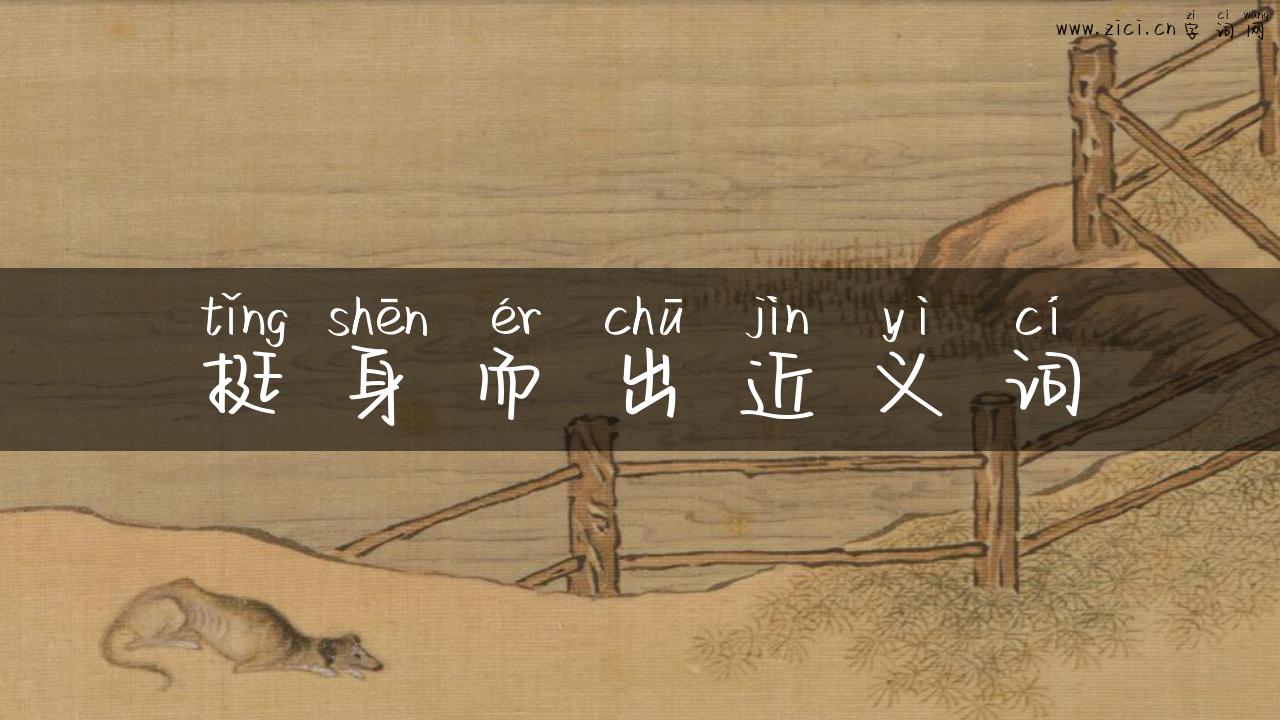 zì cí wǎng
www.zici.cn 字词网
tǐng shēn ér chū jìn yì cí
挺身而出近义词